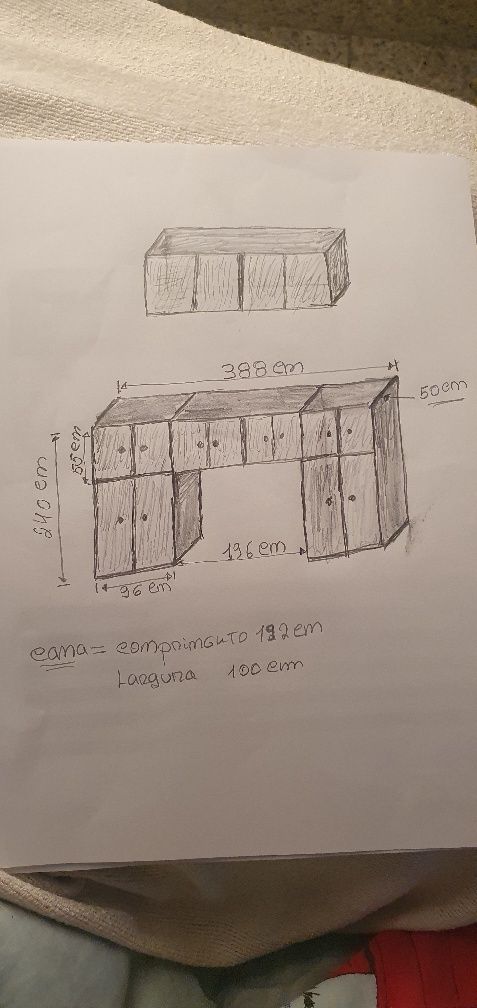 388 cm
50 cm
55 cm
240 cm
196 cm
96 cm
cama = comprimento 192 cm
Largura 100 cm